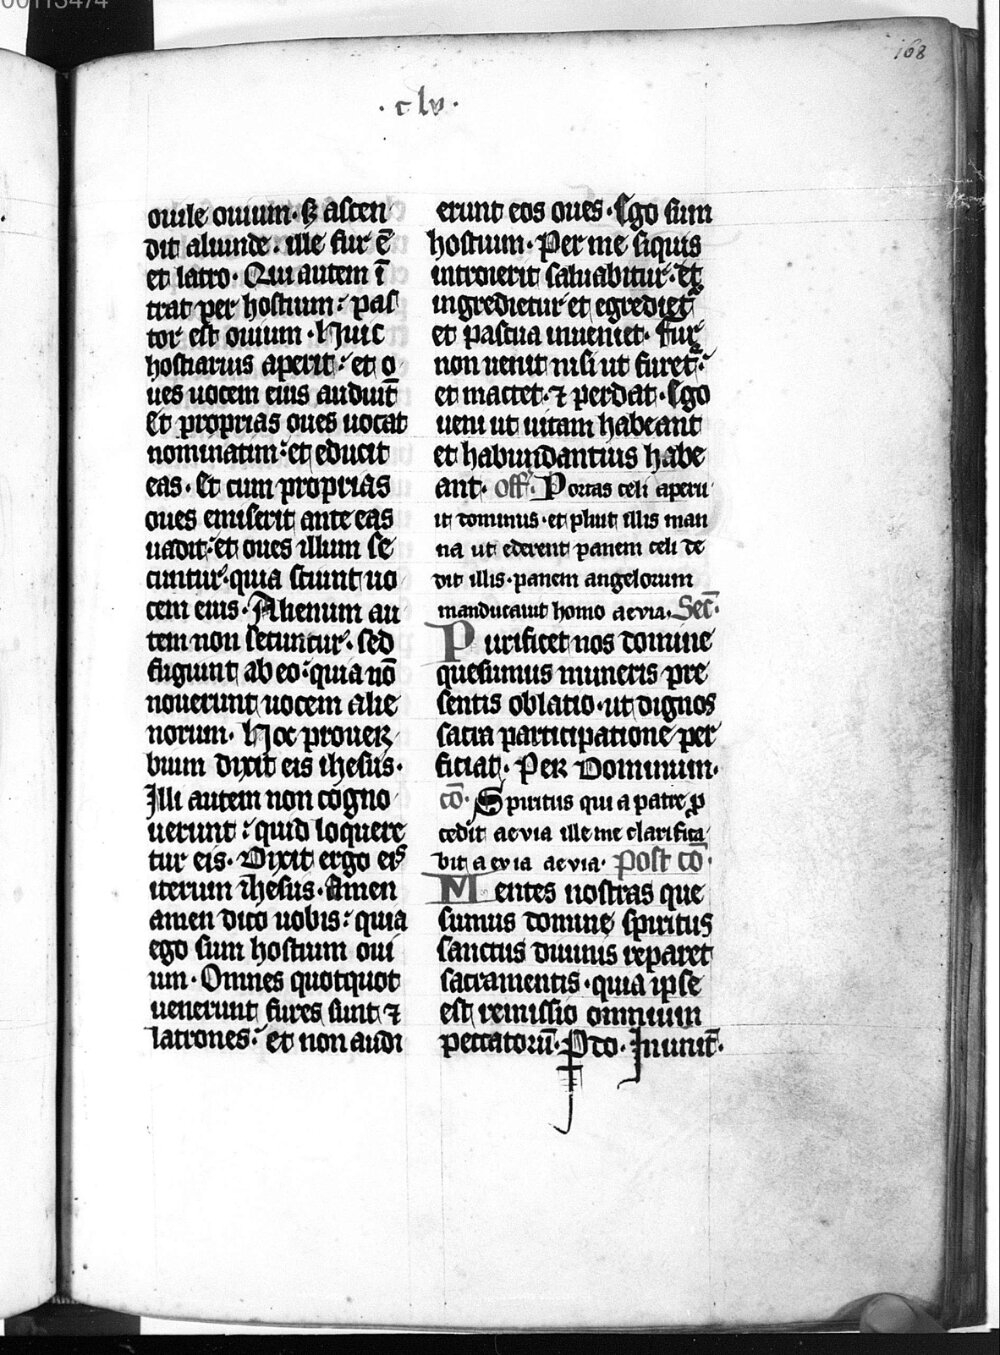 00113474
168
· clv ·
ouile ouium · sꝫ ascen
dit aliunde · ille fur ē
et latro · Qui autem ī
trat per hostium : pas
tor est ouium · Huic
hostiarius aperit : et o
ues uocem eius audiūt
Et proprias oues uocat
nominatim : et educit
eas · Et cum proprias
oues emiserit ante eas
uadit : et oues illum se
cuntur · quia sciunt uo
cem eius · Alienum au
tem non secuntur · sed
fugiunt ab eo : quia nō
nouerunt uocem alie
norum · Hoc prouer
bium dixit eis ihesus ·
Illi autem non cogno
uerunt : quid loquere
tur eis · Dixit ergo eis
iterum ihesus · Amen
amen dico uobis : quia
ego sum hostium oui
um · Omnes quotquot
uenerunt fures sunt ⁊
latrones : et non audi
erunt eos oues · Ego sum
hostium · Per me siquis
introierit saluabitur · et
ingredietur et egrediet᷑
et pascua inueniet · Fur
non uenit nisi ut furet᷑ :
et mactet · ⁊ perdat · Ego
ueni ut uitam habeant
et habundantius habe
ant · off᷑ · Portas celi aperu
it dominus · et pluit illis man
na ut ederent panem celi de
dit illis · panem angelorum
manducauit homo aevia · Sec̄ ·
Purificet nos domine
quesumus muneris pre
sentis oblatio · ut dignos
sacra participatione per
ficiat · Per Dominum ·
cō · Spiritus qui a patre ꝓ
cedit aevia ille me clarifica
bit aevia aevia · Post cō ·
Mentes nostras que
sumus domine spiritus
sanctus diuinis reparet
sacramentis · quia ipse
est remissio omnium
peccatorū · P do · In unit̄ ·